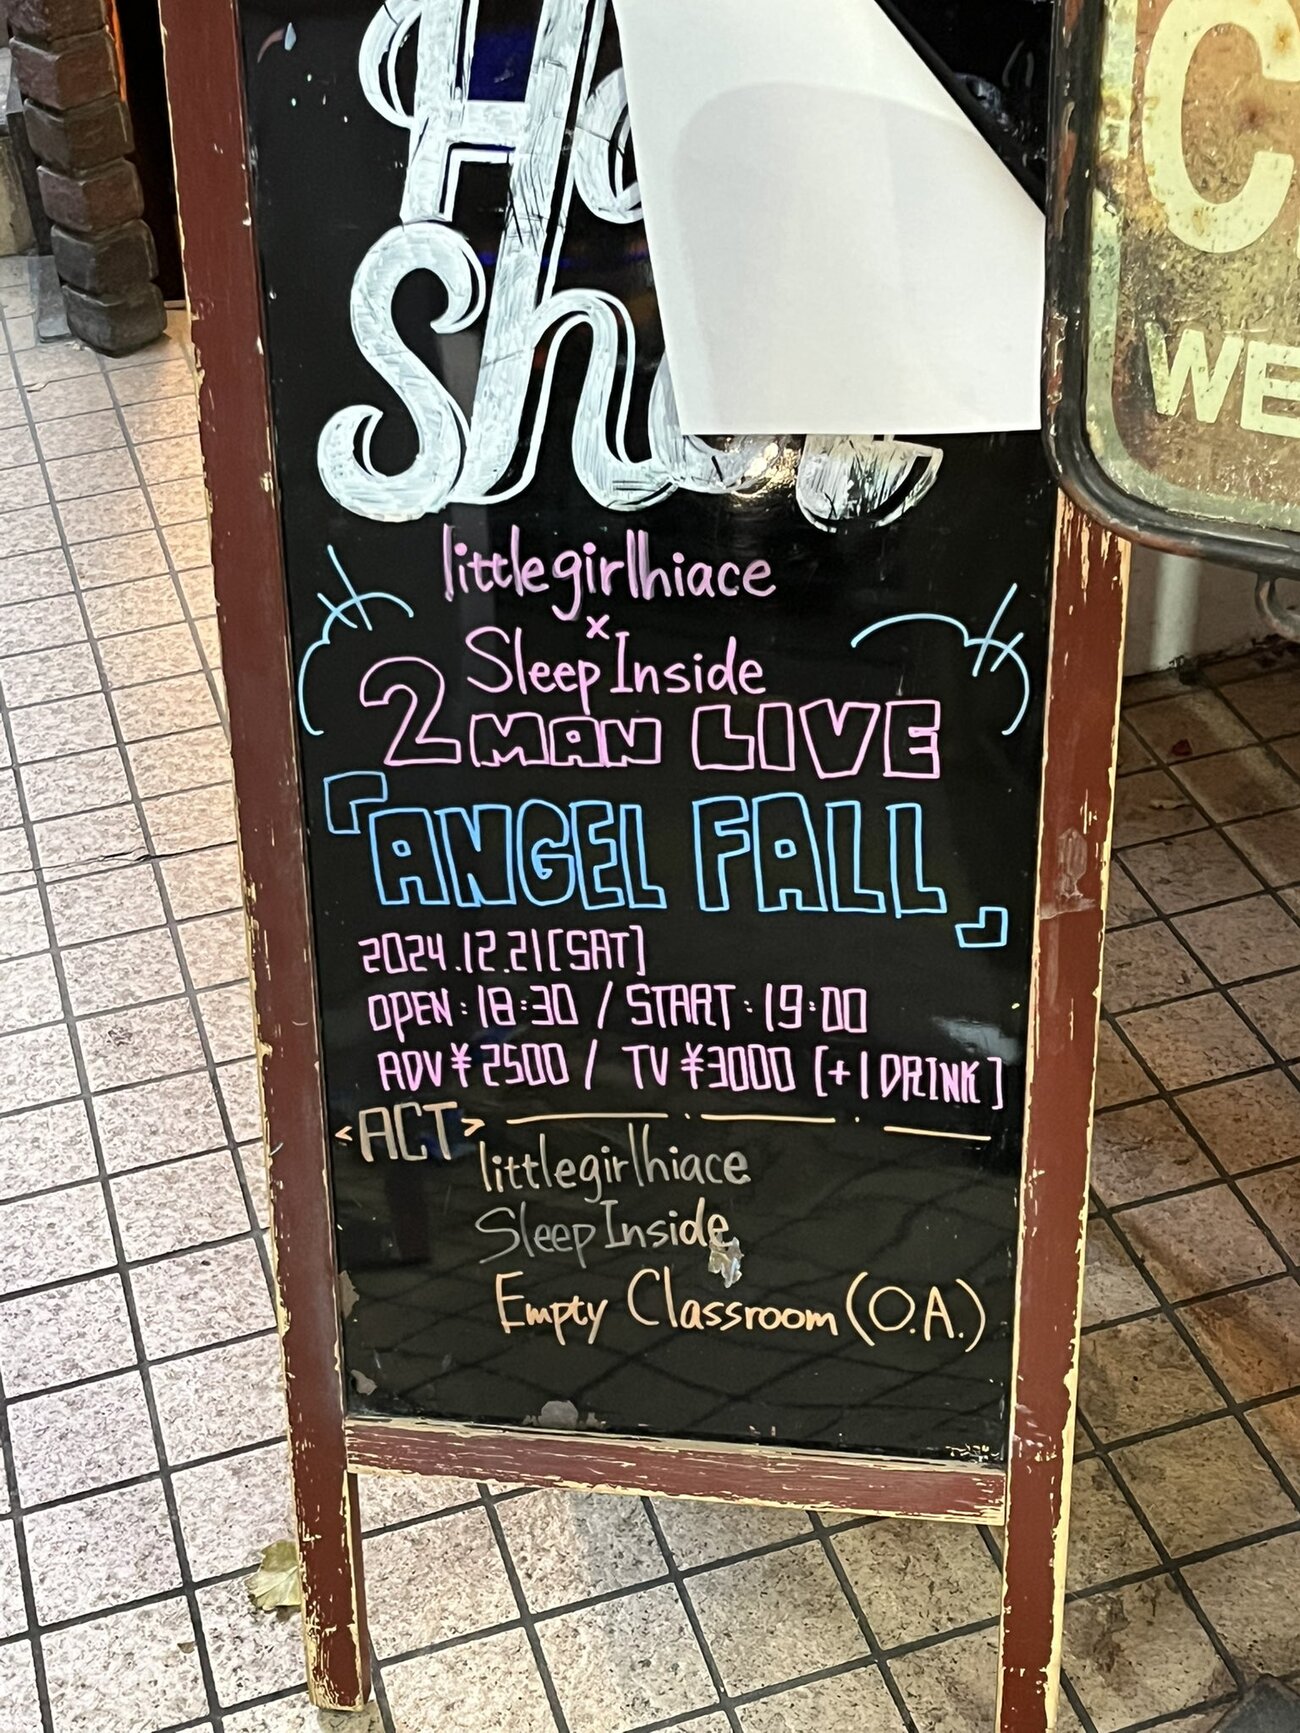 littlegirlhiace
×
Sleep Inside
2MAN LIVE
『ANGEL FALL』
2024.12.21[SAT]
OPEN:18:30 / START:19:00
ADV ¥2500 / TV ¥3000 [+1DRINK]
<ACT>
littlegirlhiace
Sleep Inside
Empty Classroom (O.A.)
WE